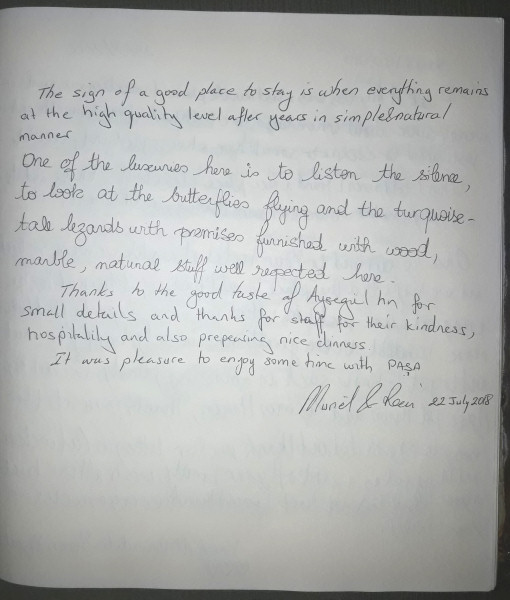 The sign of a good place to stay is when everything remains
at the high quality level after years in simple&natural
manner
One of the luxuries here is to listen the silence,
to look at the butterflies flying and the turquoise-
tale lezards with premises furnished with wood,
marble, natural stuff well respected here.
Thanks to the good taste of Ayşegül hn for
small details and thanks for staff for their kindness,
hospitality and also prepearing nice dinners.
It was pleasure to enjoy some time with PAŞA
& 22 July 2018